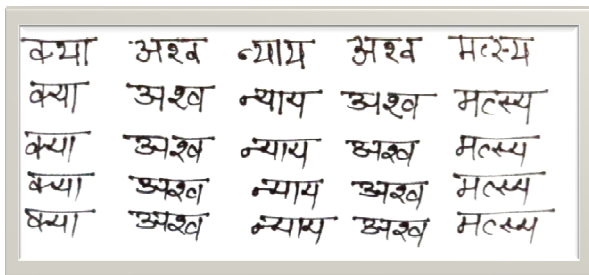 क्या अश्व न्याय अश्व मत्स्य
क्या अश्व न्याय अश्व मत्स्य
क्या अश्व न्याय अश्व मत्स्य
क्या अश्व न्याय अश्व मत्स्य
क्या अश्व न्याय अश्व मत्स्य